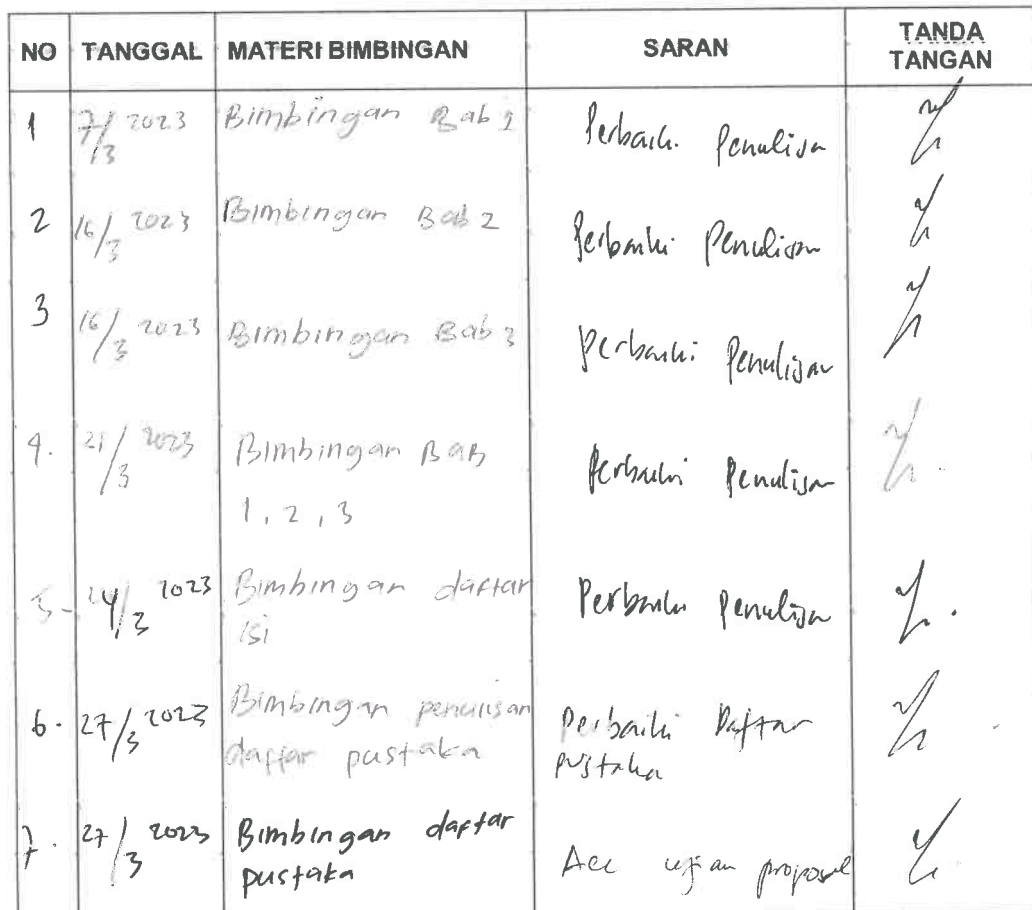 NO TANGGAL MATERI BIMBINGAN SARAN TANDA TANGAN
1 7/3 2023 Bimbingan Bab 1 Perbaiki Penulisan
2 16/3 2023 Bimbingan Bab 2 Perbaiki Penulisan
3 16/3 2023 Bimbingan Bab 3 Perbaiki Penulisan
4. 21/3 2023 Bimbingan BAB Perbaiki Penulisan
1, 2, 3
5- 24/3 2023 Bimbingan daftar Perbaiki Penulisan
isi
6. 27/3 2023 Bimbingan penulisan Perbaiki Daftar
daftar pustaka pustaka
7. 27/3 2023 Bimbingan daftar Acc ujian proposal
pustaka